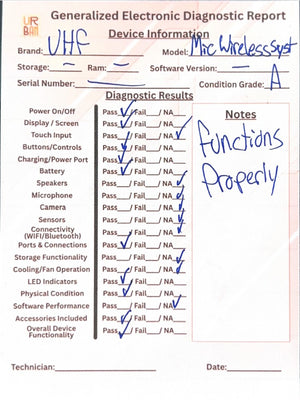 UR
BAN
Generalized Electronic Diagnostic Report
Device Information
Brand: VHF Model: Mic Wireless Syst
Storage: — Ram: — Software Version: —
Serial Number: Condition Grade: A
Diagnostic Results
Power On/Off Pass ✓/ Fail___/ NA___
Display / Screen Pass ✓/ Fail___/ NA___
Touch Input Pass___/ Fail___/ NA ✓
Buttons/Controls Pass ✓/ Fail___/ NA___
Charging/Power Port Pass ✓/ Fail___/ NA___
Battery Pass ✓/ Fail___/ NA___
Speakers Pass___/ Fail___/ NA ✓
Microphone Pass___/ Fail___/ NA ✓
Camera Pass___/ Fail___/ NA ✓
Sensors Pass___/ Fail___/ NA ✓
Connectivity
(WIFI/Bluetooth) Pass___/ Fail___/ NA ✓
Ports & Connections Pass ✓/ Fail___/ NA___
Storage Functionality Pass___/ Fail___/ NA ✓
Cooling/Fan Operation Pass___/ Fail___/ NA ✓
LED Indicators Pass ✓/ Fail___/ NA___
Physical Condition Pass ✓/ Fail___/ NA___
Software Performance Pass___/ Fail___/ NA ✓
Accessories Included Pass ✓/ Fail___/ NA___
Overall Device
Functionality Pass ✓/ Fail___/ NA___
Notes
Functions
Properly
Technician:
Date: